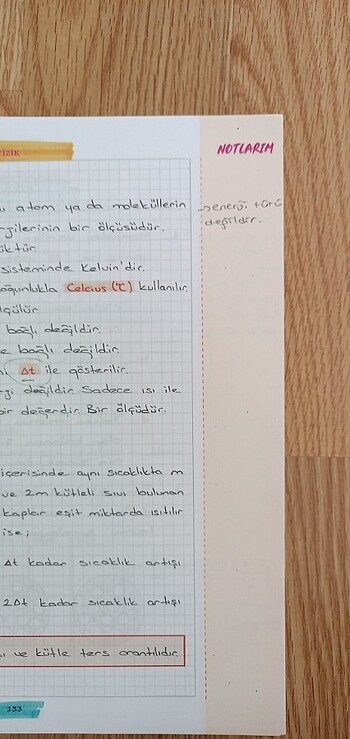 FİZİK
NOTLARIM
atom ya da moleküllerin
→ enerji türü
değildir.
gilerinin bir ölçüsüdür.
iktür.
sisteminde Kelvin'dir.
oğunlukla Celcius (°C) kullanılır.
lçülür.
bağlı değildir.
e bağlı değildir.
Δt ile gösterilir.
gi değildir. Sadece ısı ile
bir değerdir. Bir ölçüdür.
içerisinde aynı sıcaklıkta m
ve 2m kütleli sıvı bulunan
kaplar eşit miktarda ısıtılır
ise;
Δt kadar sıcaklık artışı
2Δt kadar sıcaklık artışı
ı ve kütle ters orantılıdır.
133